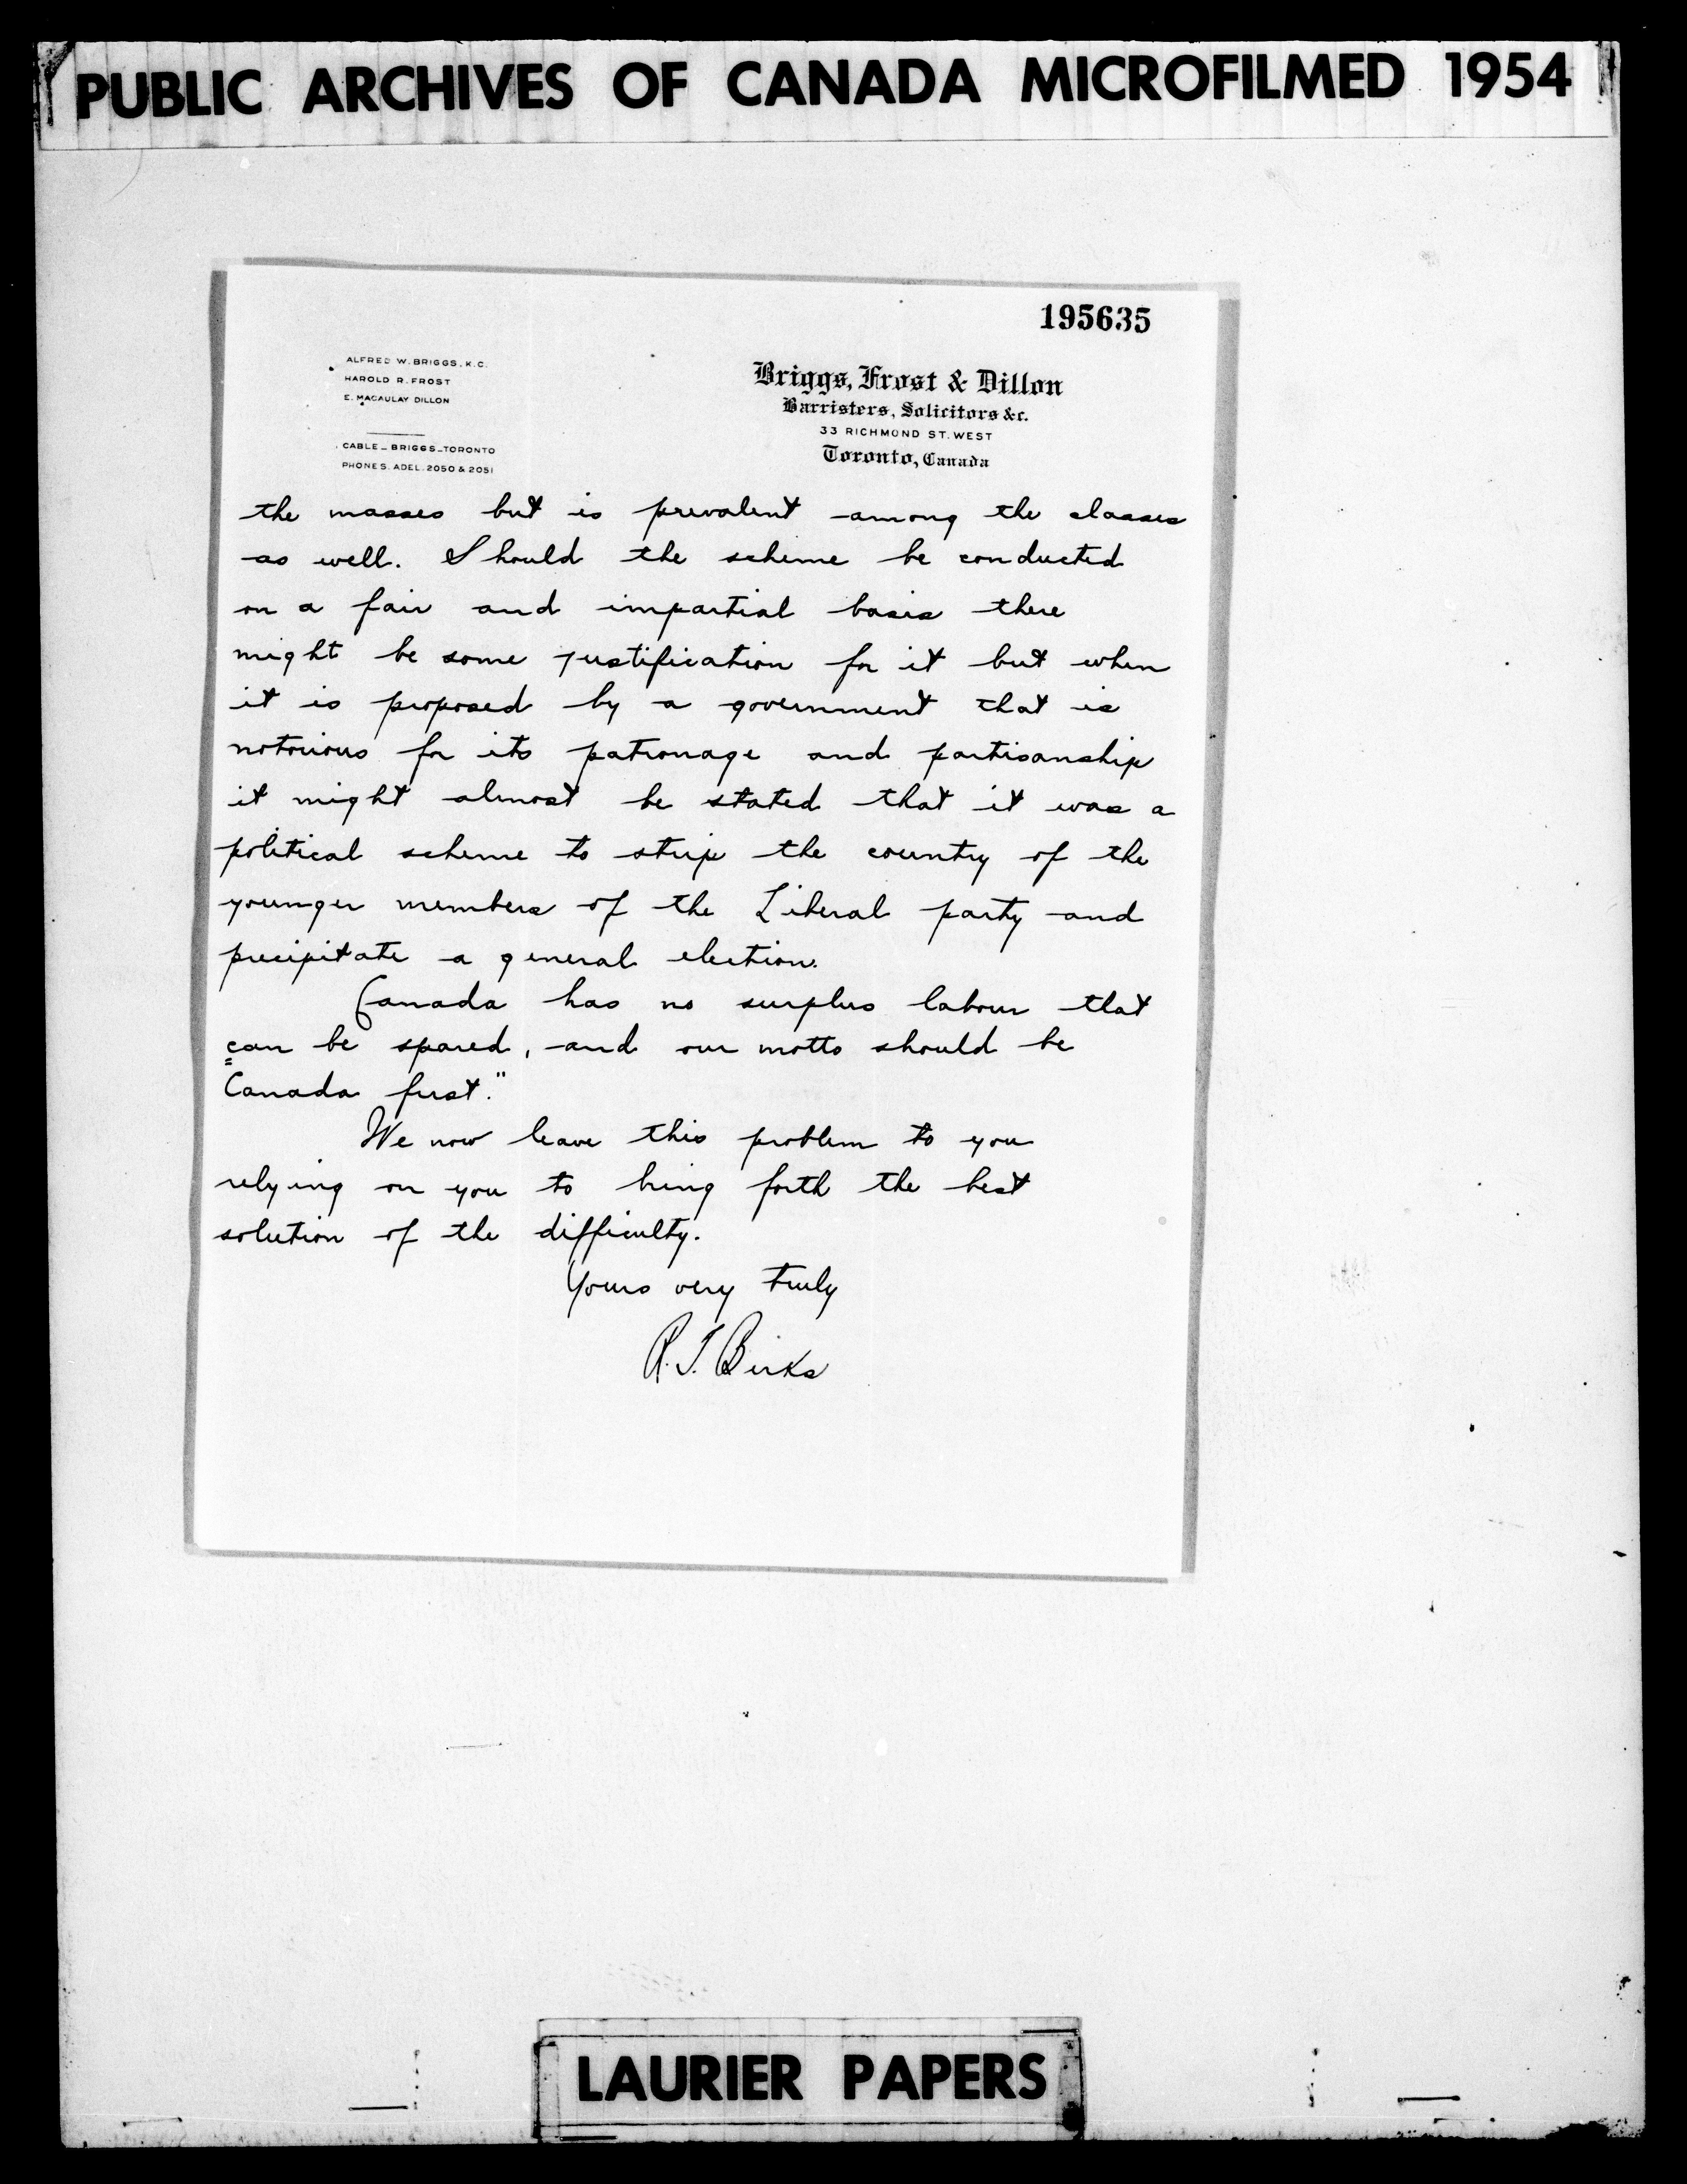 PUBLIC ARCHIVES OF CANADA MICROFILMED 1954
195635
ALFRED W. BRIGGS, K.C.
HAROLD R. FROST
E. MACAULAY DILLON
CABLE - BRIGGS - TORONTO
PHONES. ADEL. 2050 & 2051
Briggs, Frost & Dillon
Barristers, Solicitors &c.
33 RICHMOND ST. WEST
Toronto, Canada
the masses but is prevalent among the classes
as well. Should the scheme be conducted
on a fair and impartial basis there
might be some justification for it but when
it is proposed by a government that is
notorious for its patronage and partisanship
it might almost be stated that it was a
political scheme to strip the country of the
younger members of the Liberal party and
precipitate a general election.
Canada has no surplus labour that
can be spared, and our motto should be
"Canada first."
We now leave this problem to you
relying on you to bring forth the best
solution of the difficulty.
Yours very truly
R. J. Birks
LAURIER PAPERS